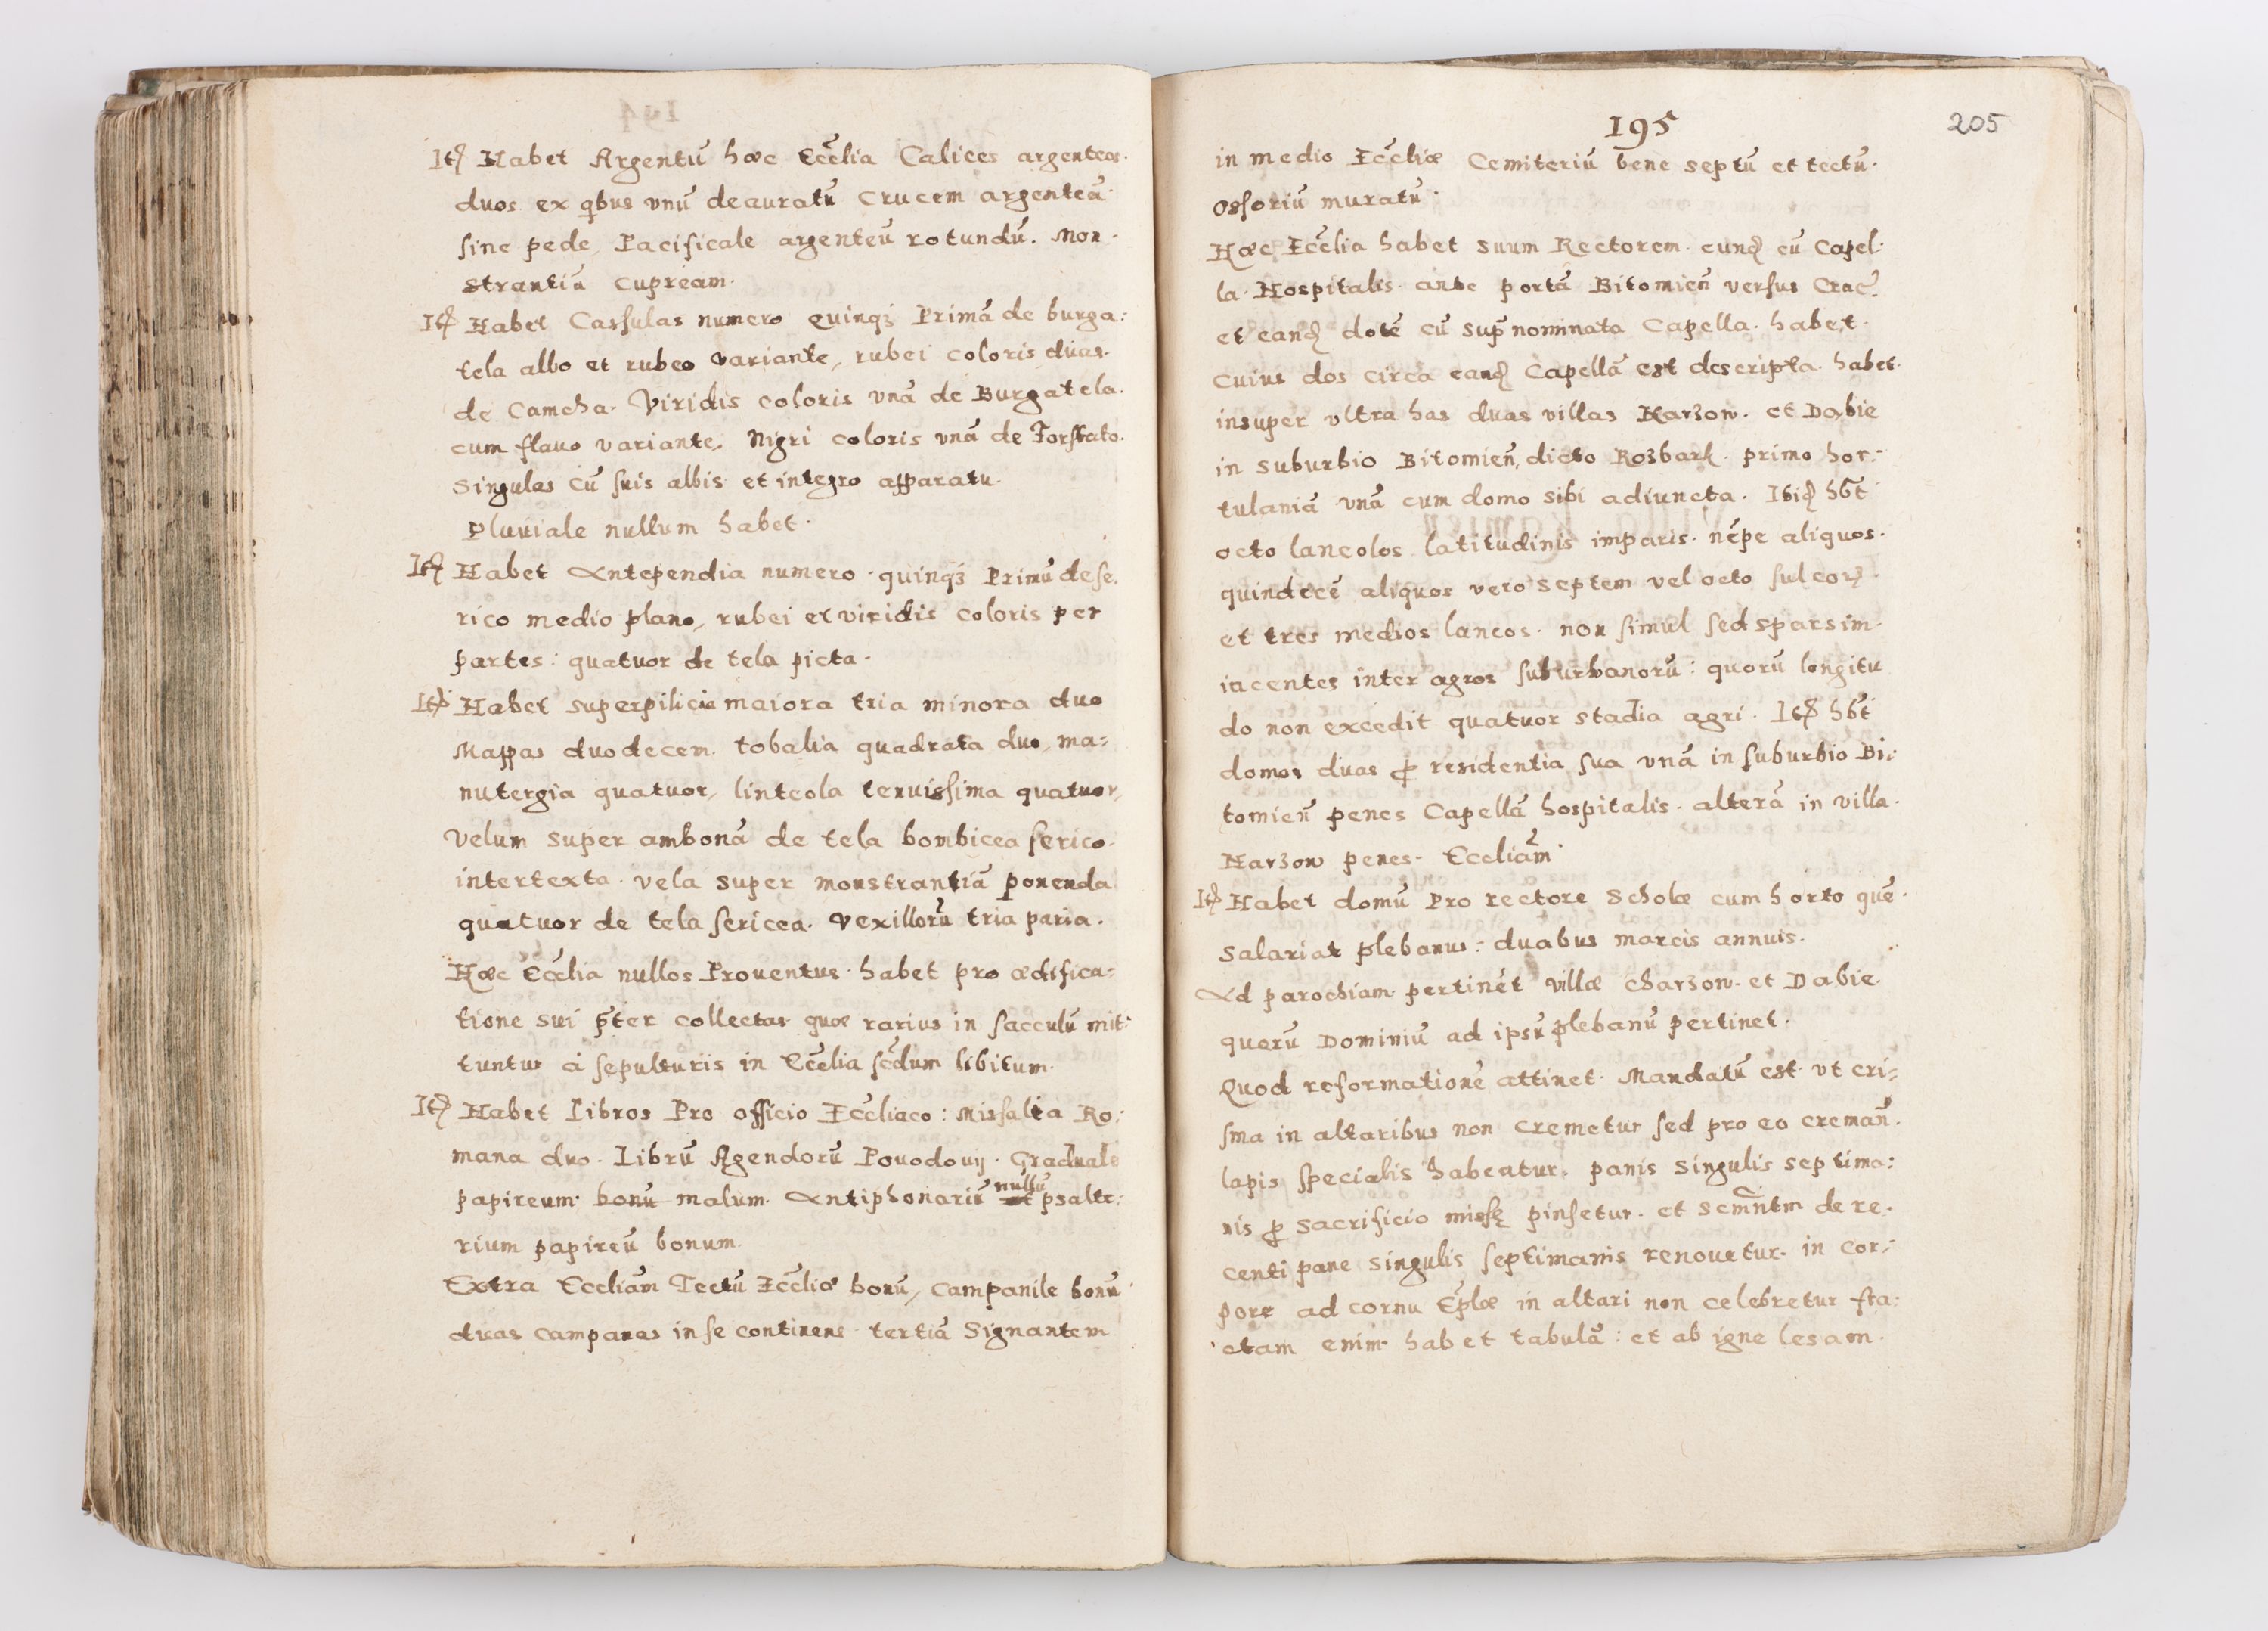 Itē Habet Argentū hæc Eccĺia Calices argenteos.
duos ex qibus vnū deauratū crucem argenteā
sine pede, Pacificale argenteū rotundū. Mon-
strantiā cupream.
Itē Habet Cassulas numero quinqȝ Primā de burga:
tela albo et rubeo variante, rubei coloris duas.
de Camcha. Viridis coloris vnā de Burgatela.
cum flauo variante. Nigri coloris vnā de Forstato.
Singulas cū suis albis et integro apparatu.
Pluuiale nullum habet.
Itē Habet Antependia numero quinqȝ Primū de se.
rico medio plano, rubei et viridis coloris per
partes: quatuor de tela picta.
Itē Habet superpilicia maiora tria minora duo
Mappas duodecem. tobalia quadrata duo, ma=
nutergia quatuor, linteola tenuissima quatuor,
Velum super ambonā de tela bombicea serico
intertexta. vela super monstrantiā ponenda
quatuor de tela sericea. Vexillorū tria paria.
Hæc Eccĺia nullos Prouentus habet pro ædifica=
tione sui p̄ter collectas quæ rarius in sacculū mit:
tuntur á sepulturis in Eccĺia scdum libitum.
Itē Habet Libros Pro officio Eccĺiaco: Missalia Ro:
mana duo. Librū Agendorū Pouodouij. Graduale
nullū
papireum bonū malum. Antiphonariū et psalte:
rium papireū bonum.
Extra Eccliam Tectū Eccĺiæ bonū, campanile bonū
duas campanas in se continens tertiā Signantem
195
205
in medio Eccĺiæ Cemiteriū bene septū et tectū.
Ossoriū muratū.
Hæc Eccĺia habet suum Rectorem. eund̄ cū Capel.
la Hospitalis ante portā Bitomien̄ versus Crac.
et eand̄ dotē cū sup̄nominata Capella. habet.
cuius dos circa eand̄ Capellā est descripta. habet.
insuper vltra has duas villas Harzow. et Dabie
in suburbio Bitomien̄, dicto Rozbark. primo hor:
tulaniā vnā cum domo sibi adiuncta. Ibid̄ hb̄t
octo laneolos latitudinis imparis. nēpe aliquos.
quindecē aliquos vero septem vel octo sulcorȝ.
et tres medios laneos. non simul sed sparsim.
iacentes inter agros suburbanorū: quorū longitu
do non excedit quatuor stadia agri. Itē hb̄t
domos duas ꝓ residentia sua vnā in suburbio Bi:
tomien̄ penes Capellā hospitalis. alterā in villa.
Harzow penes Eccliam.
Itē Habet domū Pro rectore Scholæ cum horto quē.
salariat plebanus: duabus marcis annuis.
Ad parochiam pertinēt villæ charzow. et Dabie
quarū Dominiū ad ipsū plebanū pertinet.
Quod reformationē attinet. Mandatū est. vt cri=
sma in altaribus non cremetur sed pro eo creman̄.
lapis specialis habeatur. panis singulis septima:
nis ꝓ sacrificio missę pinsetur. et Scm̄ntm de re.
centi pane singulis septimanis renouetur. in cor:
pore ad cornu Ep̄læ in altari non celebretur fra:
ctam enim habet tabulā: et ab igne lesam.